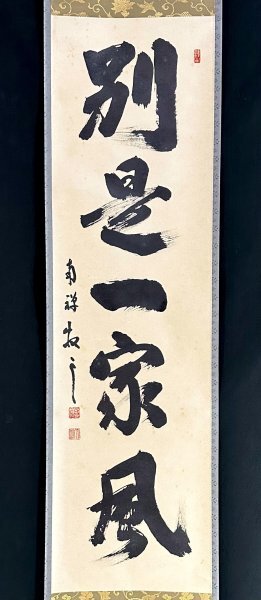 別是一家風